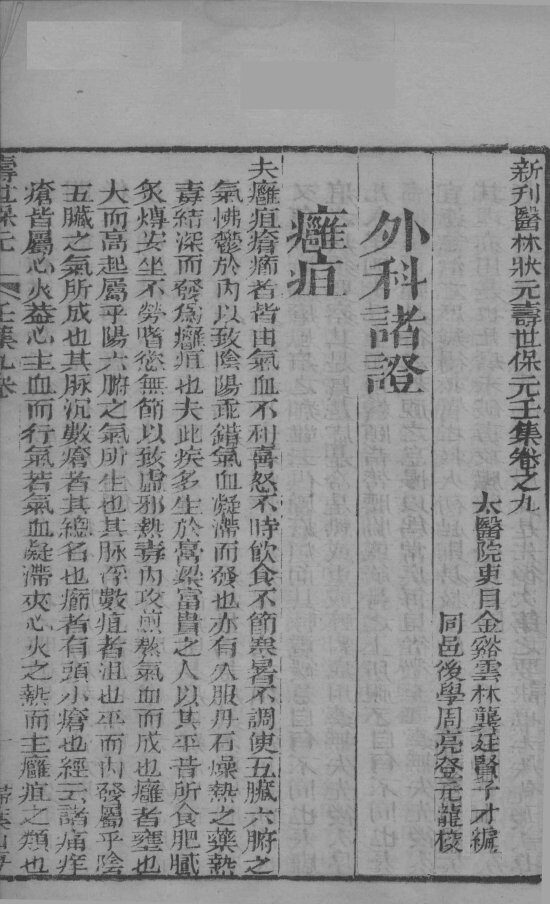 新刊醫林狀元壽世保元壬集卷之九
太醫院吏目金谿雲林龔廷賢子才編
同邑後學周亮登元龍校
外科諸證
癰疽
夫癰疽瘡癤者皆由氣血不利喜怒不時飲食不節寒暑不調使五臟六腑之
氣怫鬱於內以致陰陽乖錯氣血凝滯而發也亦有久服丹石燥熱之藥熱
毒結深而發為癰疽也夫此疾多生於膏粱富貴之人以其平昔所食肥膩
炙煿安坐不勞嗜慾無節以致虛邪熱毒內攻煎熬氣血而成也癰者壅也
大而高起屬乎陽六腑之氣所生也其脉浮數疽者沮也平而內發屬乎陰
五臟之氣所成也其脉沉數瘡者其總名也癤者有頭小瘡也經云諸痛痒
瘡皆屬心火蓋心主血而行氣若氣血凝滯夾心火之熱而主癰疽之類也
壽世保元 壬集九卷